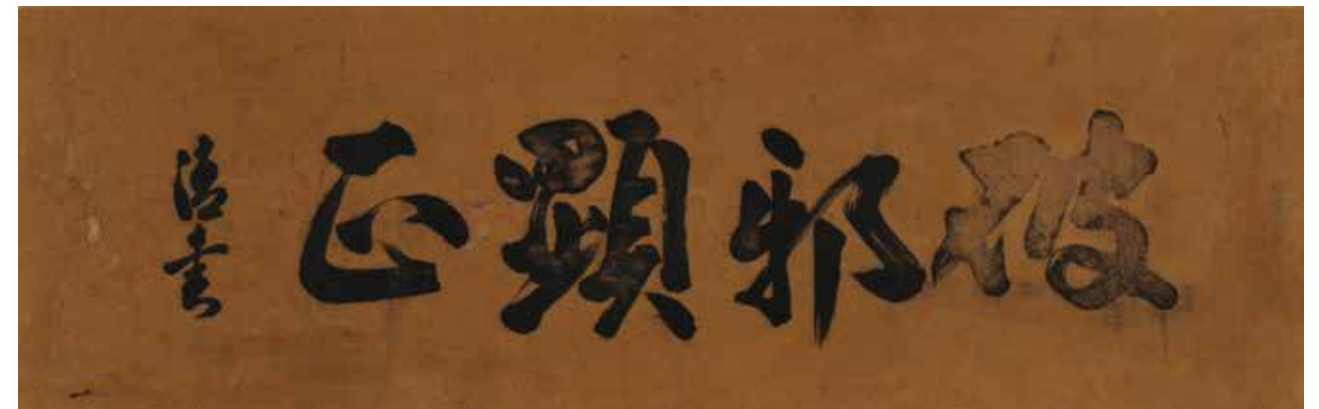 破邪顯正
清書